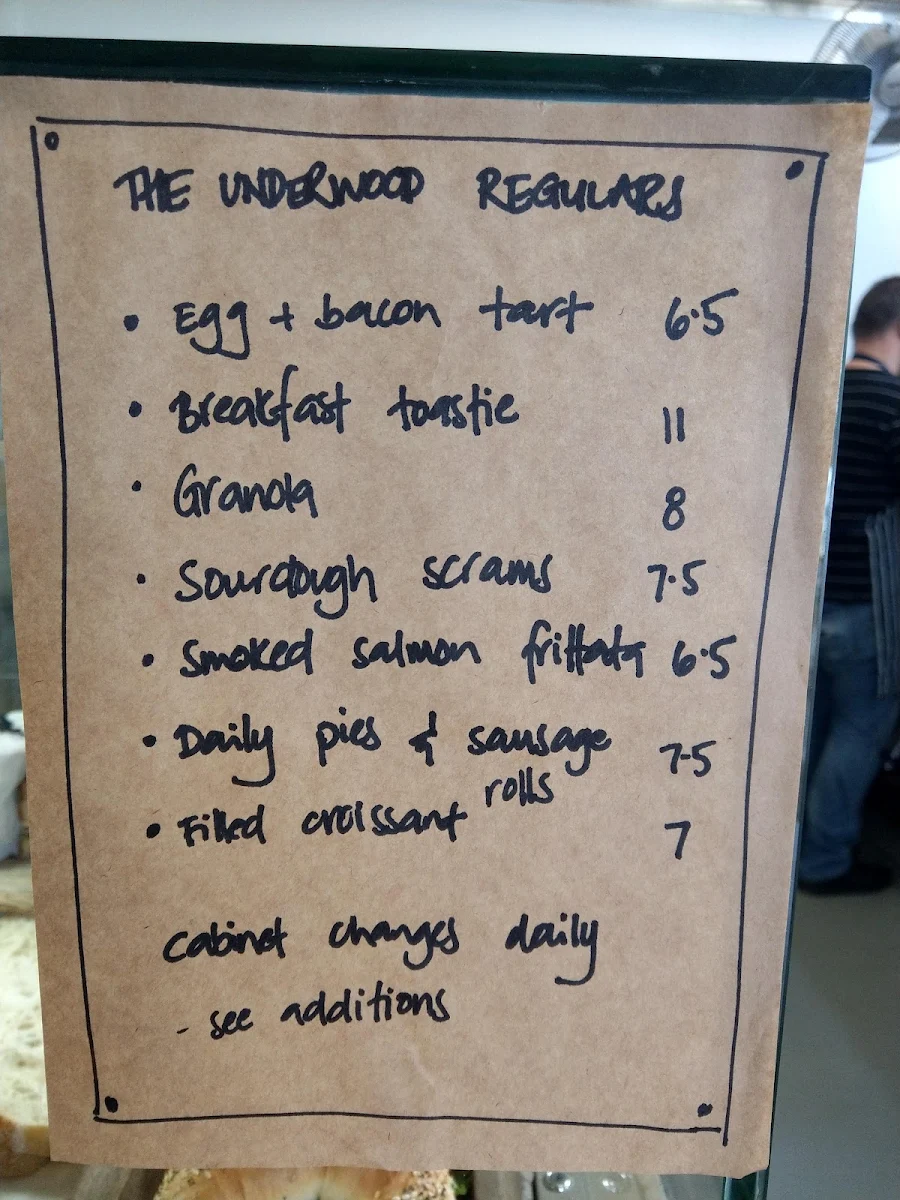 THE UNDERWOOD REGULARS
• Egg + bacon tart 6.5
• Breakfast toastie 11
• Granola 8
• Sourdough scrams 7.5
• Smoked salmon frittata 6.5
• Daily pies & sausage 7.5
rolls
• Filled croissant 7
cabinet changes daily
- see additions